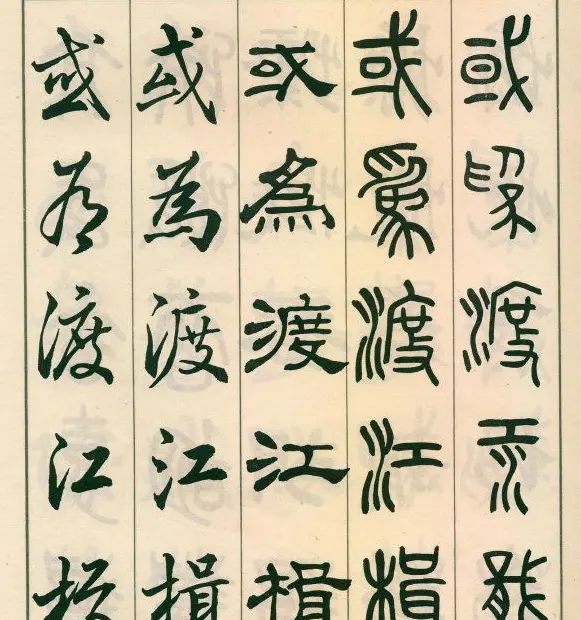 或為渡江
或為渡江楫
或為渡江楫
或為渡江楫
或為渡江楫